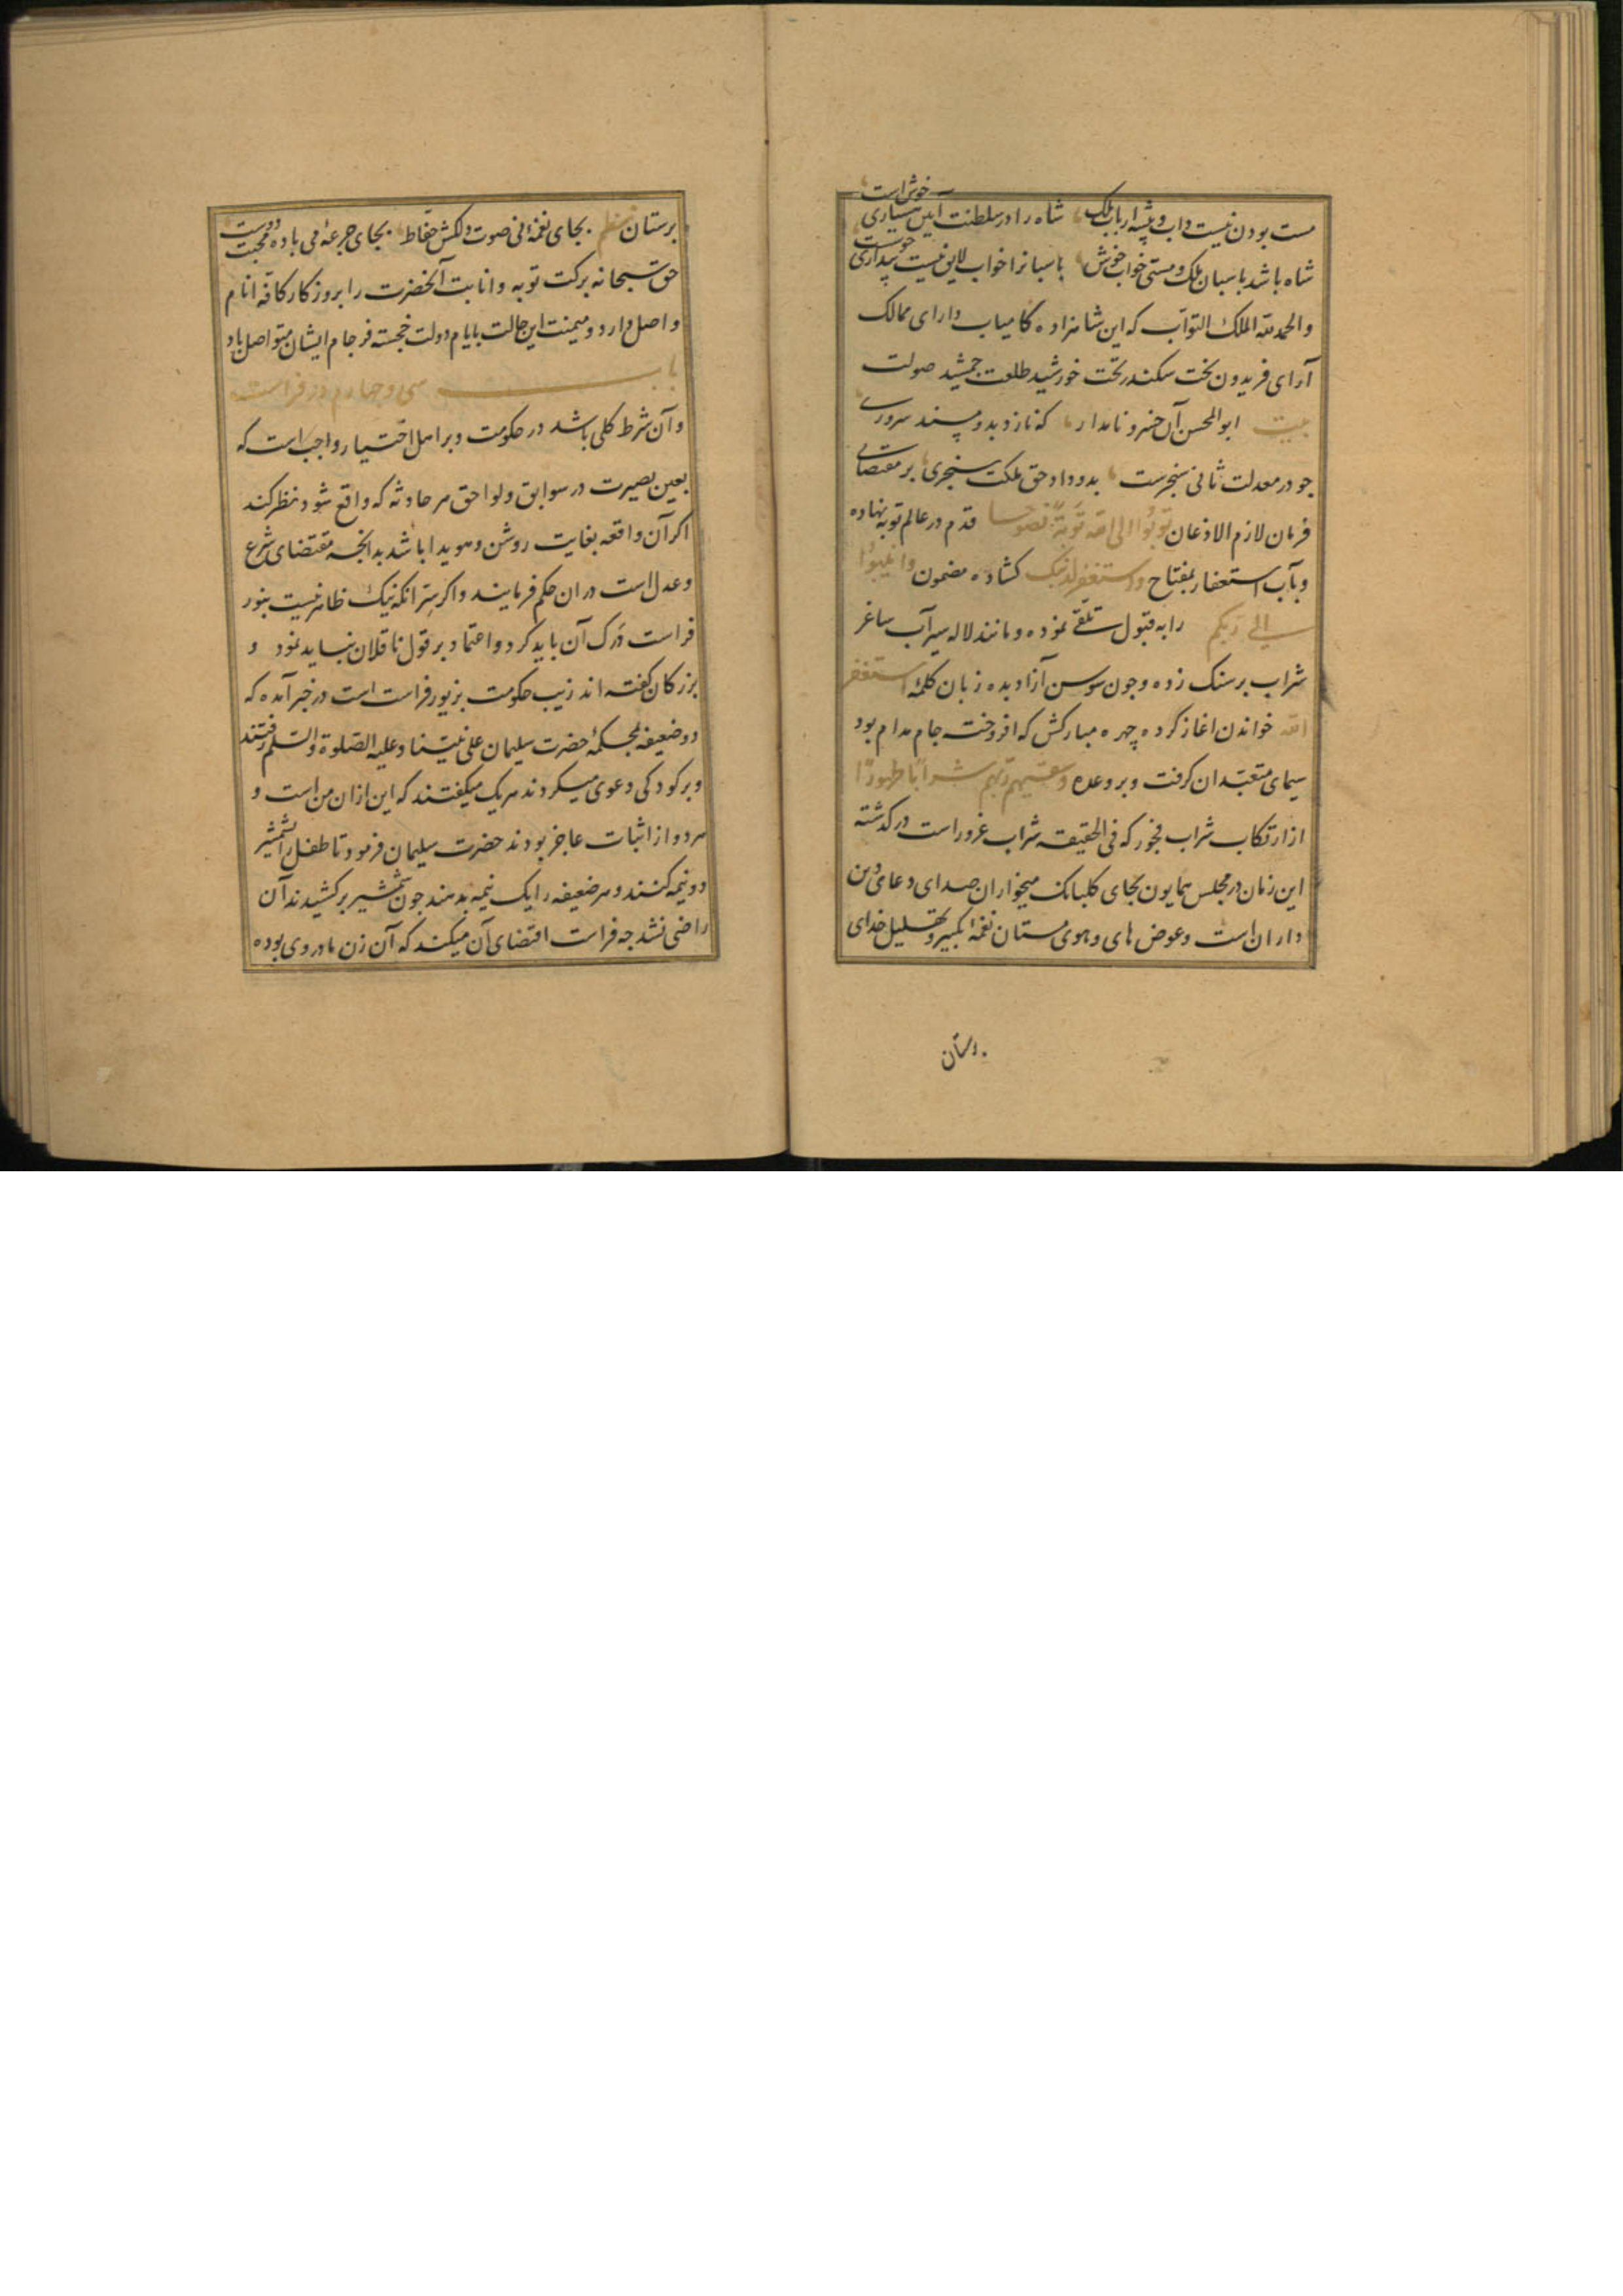 مست بودن نیست داب و پیشهٔ ارباب ملک شاه را در سلطنت آیین هشیاری خوش است
شاه باشد پاسبان ملک و مستی خواب خوش پاسبانرا خواب لایق نیست بیداری خوشست
والحمد لله الملک التوّاب که این شاهزاده کامیاب دارای ممالک
آرای فریدون بخت سکندر تخت خورشید طلعت جمشید صولت
بیت ابو المحسن آن خسرو نامدار که نازد بدو مسند سروری
جو در معدلت ثانی سنجرست بدو داد حق ملکت سنجری بر مقتضای
فرمان لازم الاذعان توبُوا الی الله تَوبَةً نصوحا قدم در عالم توبه نهاده
و باب استغفار بمفتاح واستغفر لذنبک کشاده مضمون وانیبُوا
الی ربکم را به قبول تلقی نموده و مانند لاله سیرآب ساغر
شراب بر سنک زده و جون سوسن آزاد بده زبان کلمهٔ استغفر
الله خواندن اغاز کرده چهره مبارکش که افروخته جام مدام بود
سیمای متعبّدان کرفت و بر وعده وسقیهم ربهم شرابًا طهورًا
از ارتکاب شراب فجور که فی الحقیقه شراب غرور است درکذشته
این زمان در مجلس همایون بجای کلبانک میخواران صدای دعای دین
داران است و عوض های و هوی مستان نغمهٔ تکبیر و تهلیل خدای
برستان
برستان نظم بجای نغمهٔ نی صوت دلکش حفّاظ بجای جرعهٔ می بادهٔ محبت دوست
حق سبحانه برکت توبه و انابت آنحضرت را بروزکار کافه انام
واصل دارد و میمنت این حالت بایام دولت خجسته فرجام ایشان متواصل باد
باب سی و چهارم در فراست
و آن شرط کلی باشد در حکومت و بر اهل اختیار واجب است که
بعین بصیرت در سوابق و لواحق هر حادثه که واقع شود نظر کند
اکر آن واقعه بغایت روشن و هویدا باشد بدانچه مقتضای شرع
و عدل است دران حکم فرمایند و اکر سِرّ انکه نیک ظاهر نیست بنور
فراست دَرک آن باید کرد و اعتماد بر قول ناقلان نباید نمود و
بزرکان کفته اند زیب حکومت بزیور فراست است در خبر آمده که
دو ضعیفه بمحکمهٔ حضرت سلیمان علی نبیّنا و علیه الصّلوة والسّلم رفتند
و بر کودکی دعوی میکردند هریک میکفتند که این ازان من است و
هر دو از اثبات عاجز بودند حضرت سلیمان فرمود تا طفل را بشمشیر
دو نیمه کنند و هر ضعیفه را یک نیمه بدهند جون شمشیر برکشیدند آن
راضی نشد جه فراست اقتضای آن میکند که آن زن مادر وی بوده